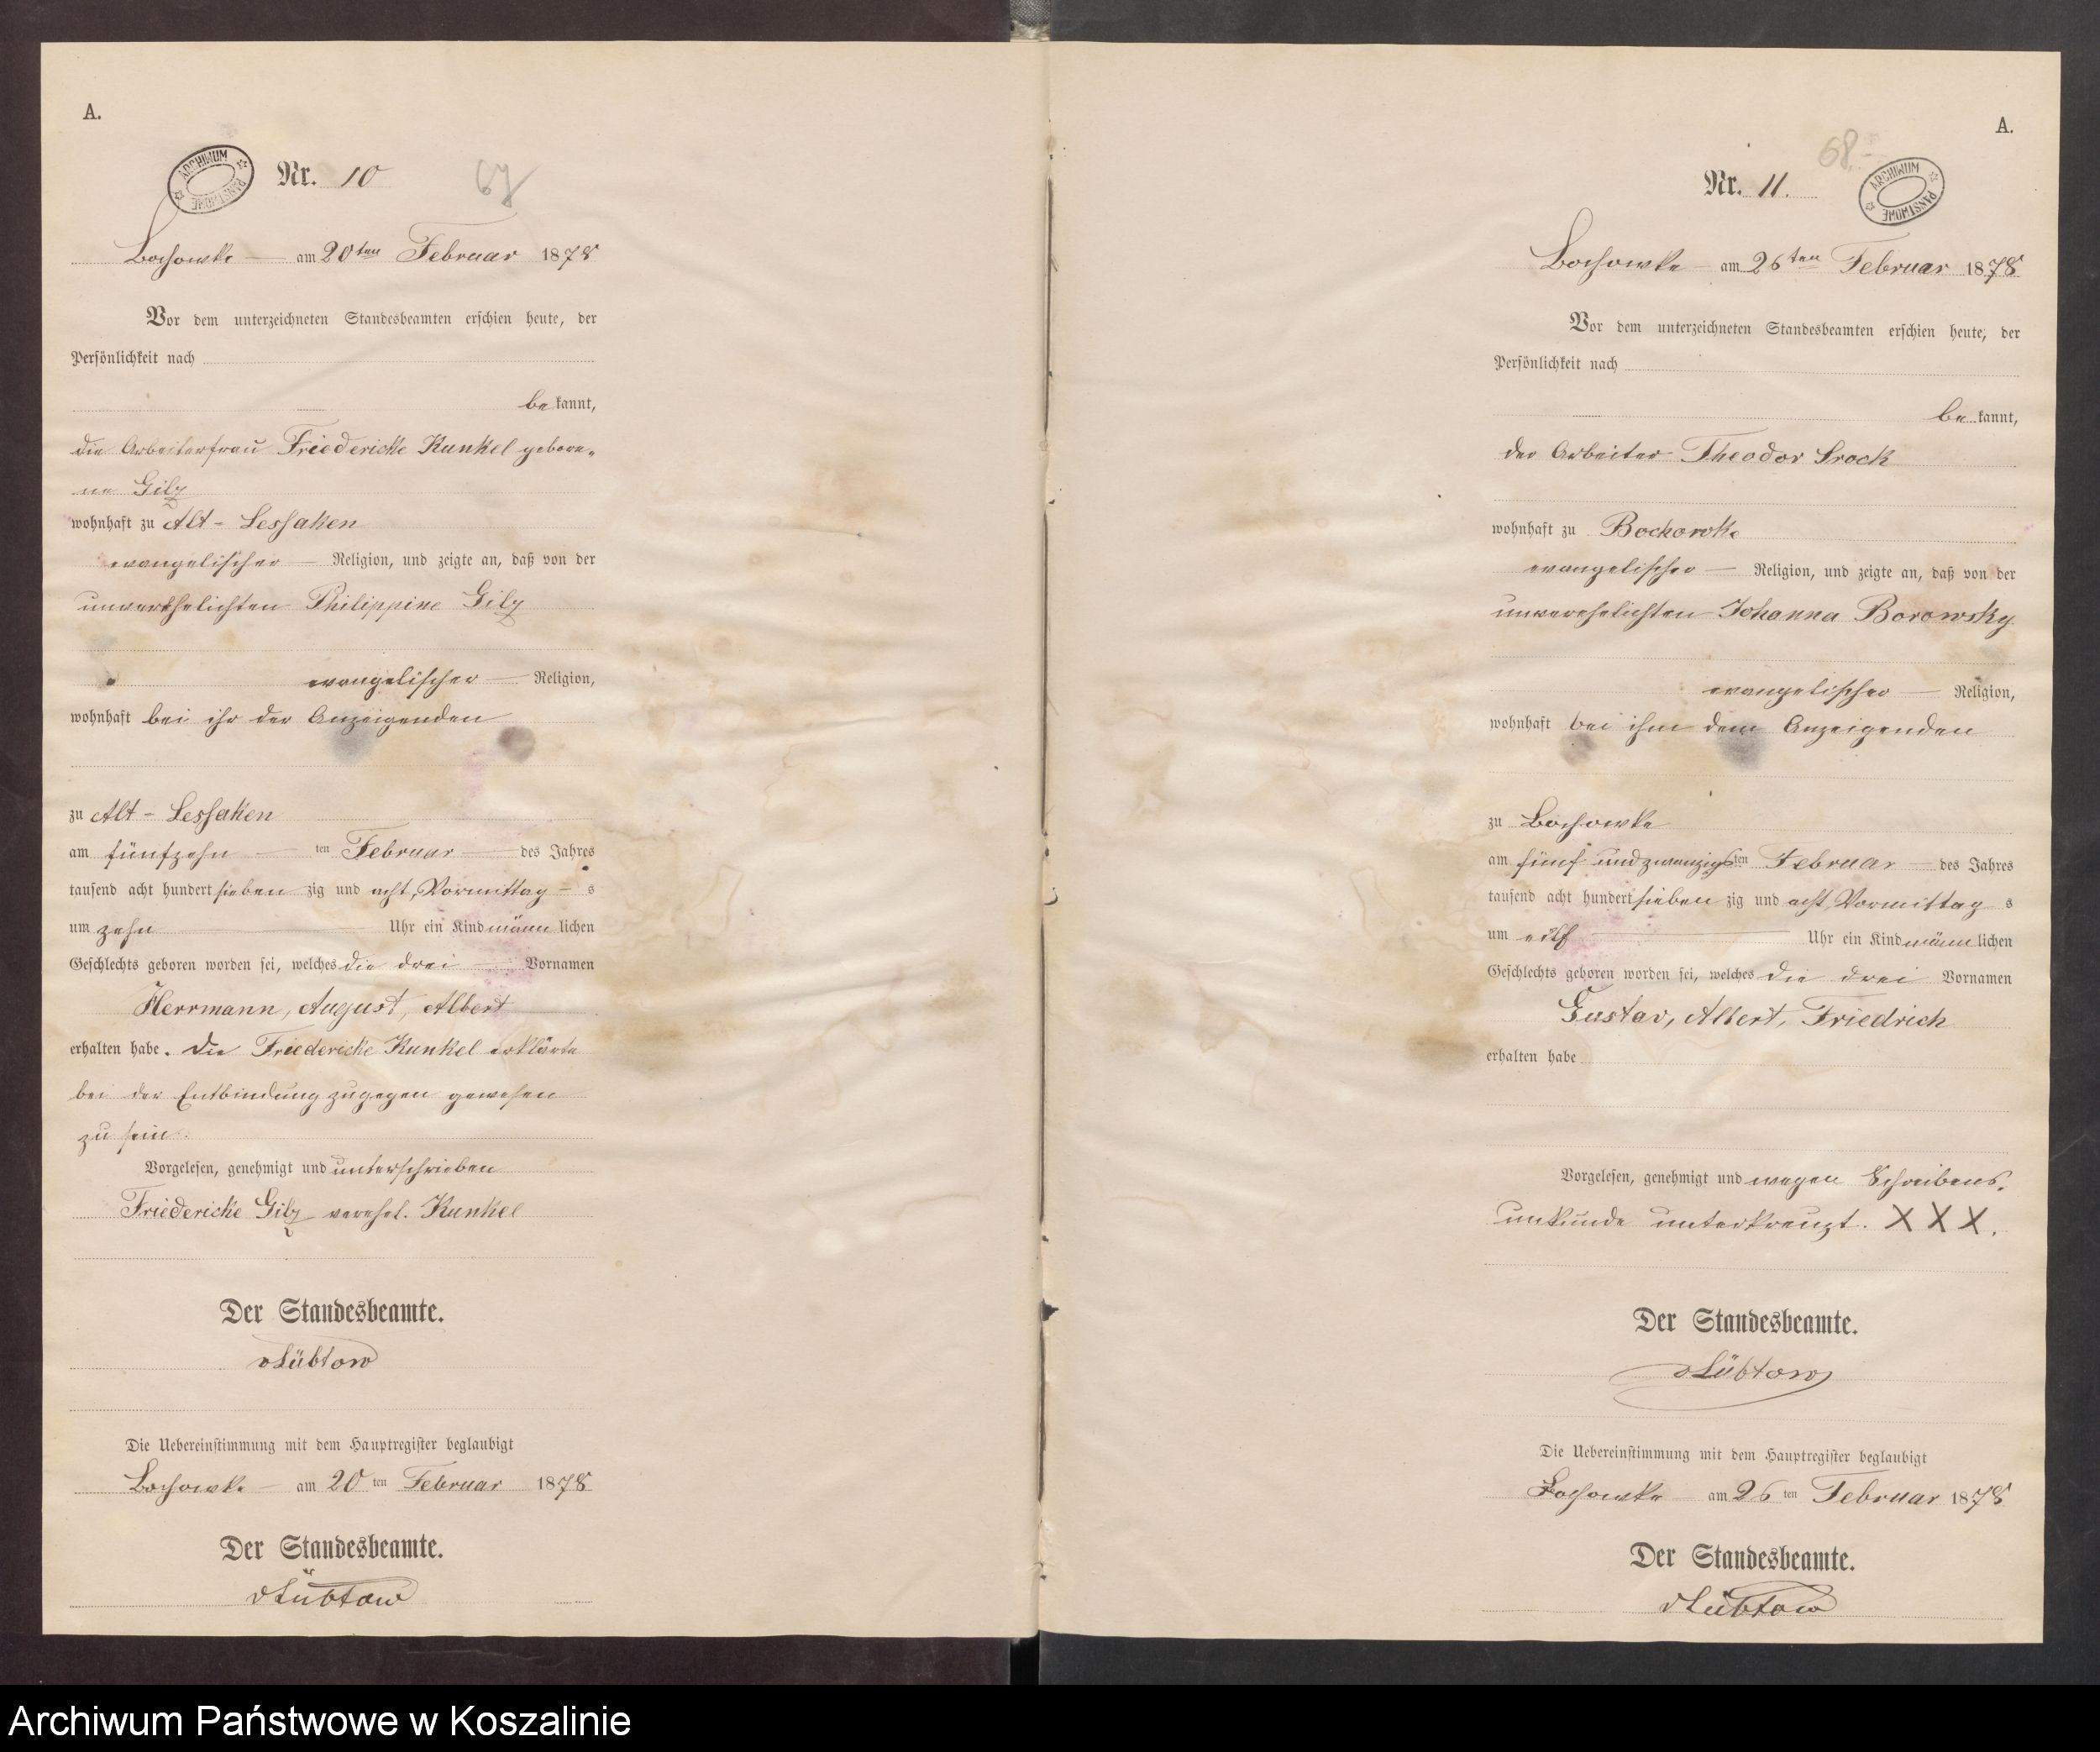 A.
ARCHIWUM PAŃSTWOWE
Nr. 10
67
Bochowke am 20ten Februar 1878
Vor dem unterzeichneten Standesbeamten erschien heute, der
Persönlichkeit nach
bekannt,
die Arbeiterfrau Friedericke Kunkel gebore-
ne Gilz
wohnhaft zu Alt-Lessaken
evangelischer Religion, und zeigte an, daß von der
unverehelichten Philippine Gilz
evangelischer Religion,
wohnhaft bei ihr der Anzeigenden
zu Alt-Lessaken
am fünfzehn ten Februar des Jahres
tausend acht hundert sieben zig und acht, Vormittag s
um zehn Uhr ein Kind männlichen
Geschlechts geboren worden sei, welches die drei Vornamen
Herrmann, August, Albert
erhalten habe. Die Friedericke Kunkel erklärte
bei der Entbindung zugegen gewesen
zu sein.
Vorgelesen, genehmigt und unterschrieben
Friedericke Gilz verehel. Kunkel
Der Standesbeamte.
vLübtow
Die Uebereinstimmung mit dem Hauptregister beglaubigt
Bochowke am 20ten Februar 1878
Der Standesbeamte.
vLübtow
A.
68.
Nr. 11.
ARCHIWUM PAŃSTWOWE
Bochowke am 26ten Februar 1878
Vor dem unterzeichneten Standesbeamten erschien heute, der
Persönlichkeit nach
bekannt,
der Arbeiter Theodor Srock
wohnhaft zu Bochowke
evangelischer Religion, und zeigte an, daß von der
unverehelichten Johanna Borowsky
evangelischer Religion,
wohnhaft bei ihm dem Anzeigenden
zu Bochowke
am fünf und zwanzigsten Februar des Jahres
tausend acht hundert sieben zig und acht, Vormittag s
um eilf Uhr ein Kind männlichen
Geschlechts geboren worden sei, welches die drei Vornamen
Gustav, Albert, Friedrich
erhalten habe
Vorgelesen, genehmigt und wegen Schreibens-
unkunde unterkreuzt. XXX.
Der Standesbeamte.
vLübtow
Die Uebereinstimmung mit dem Hauptregister beglaubigt
Bochowke am 26ten Februar 1878
Der Standesbeamte.
vLübtow
Archiwum Państwowe w Koszalinie